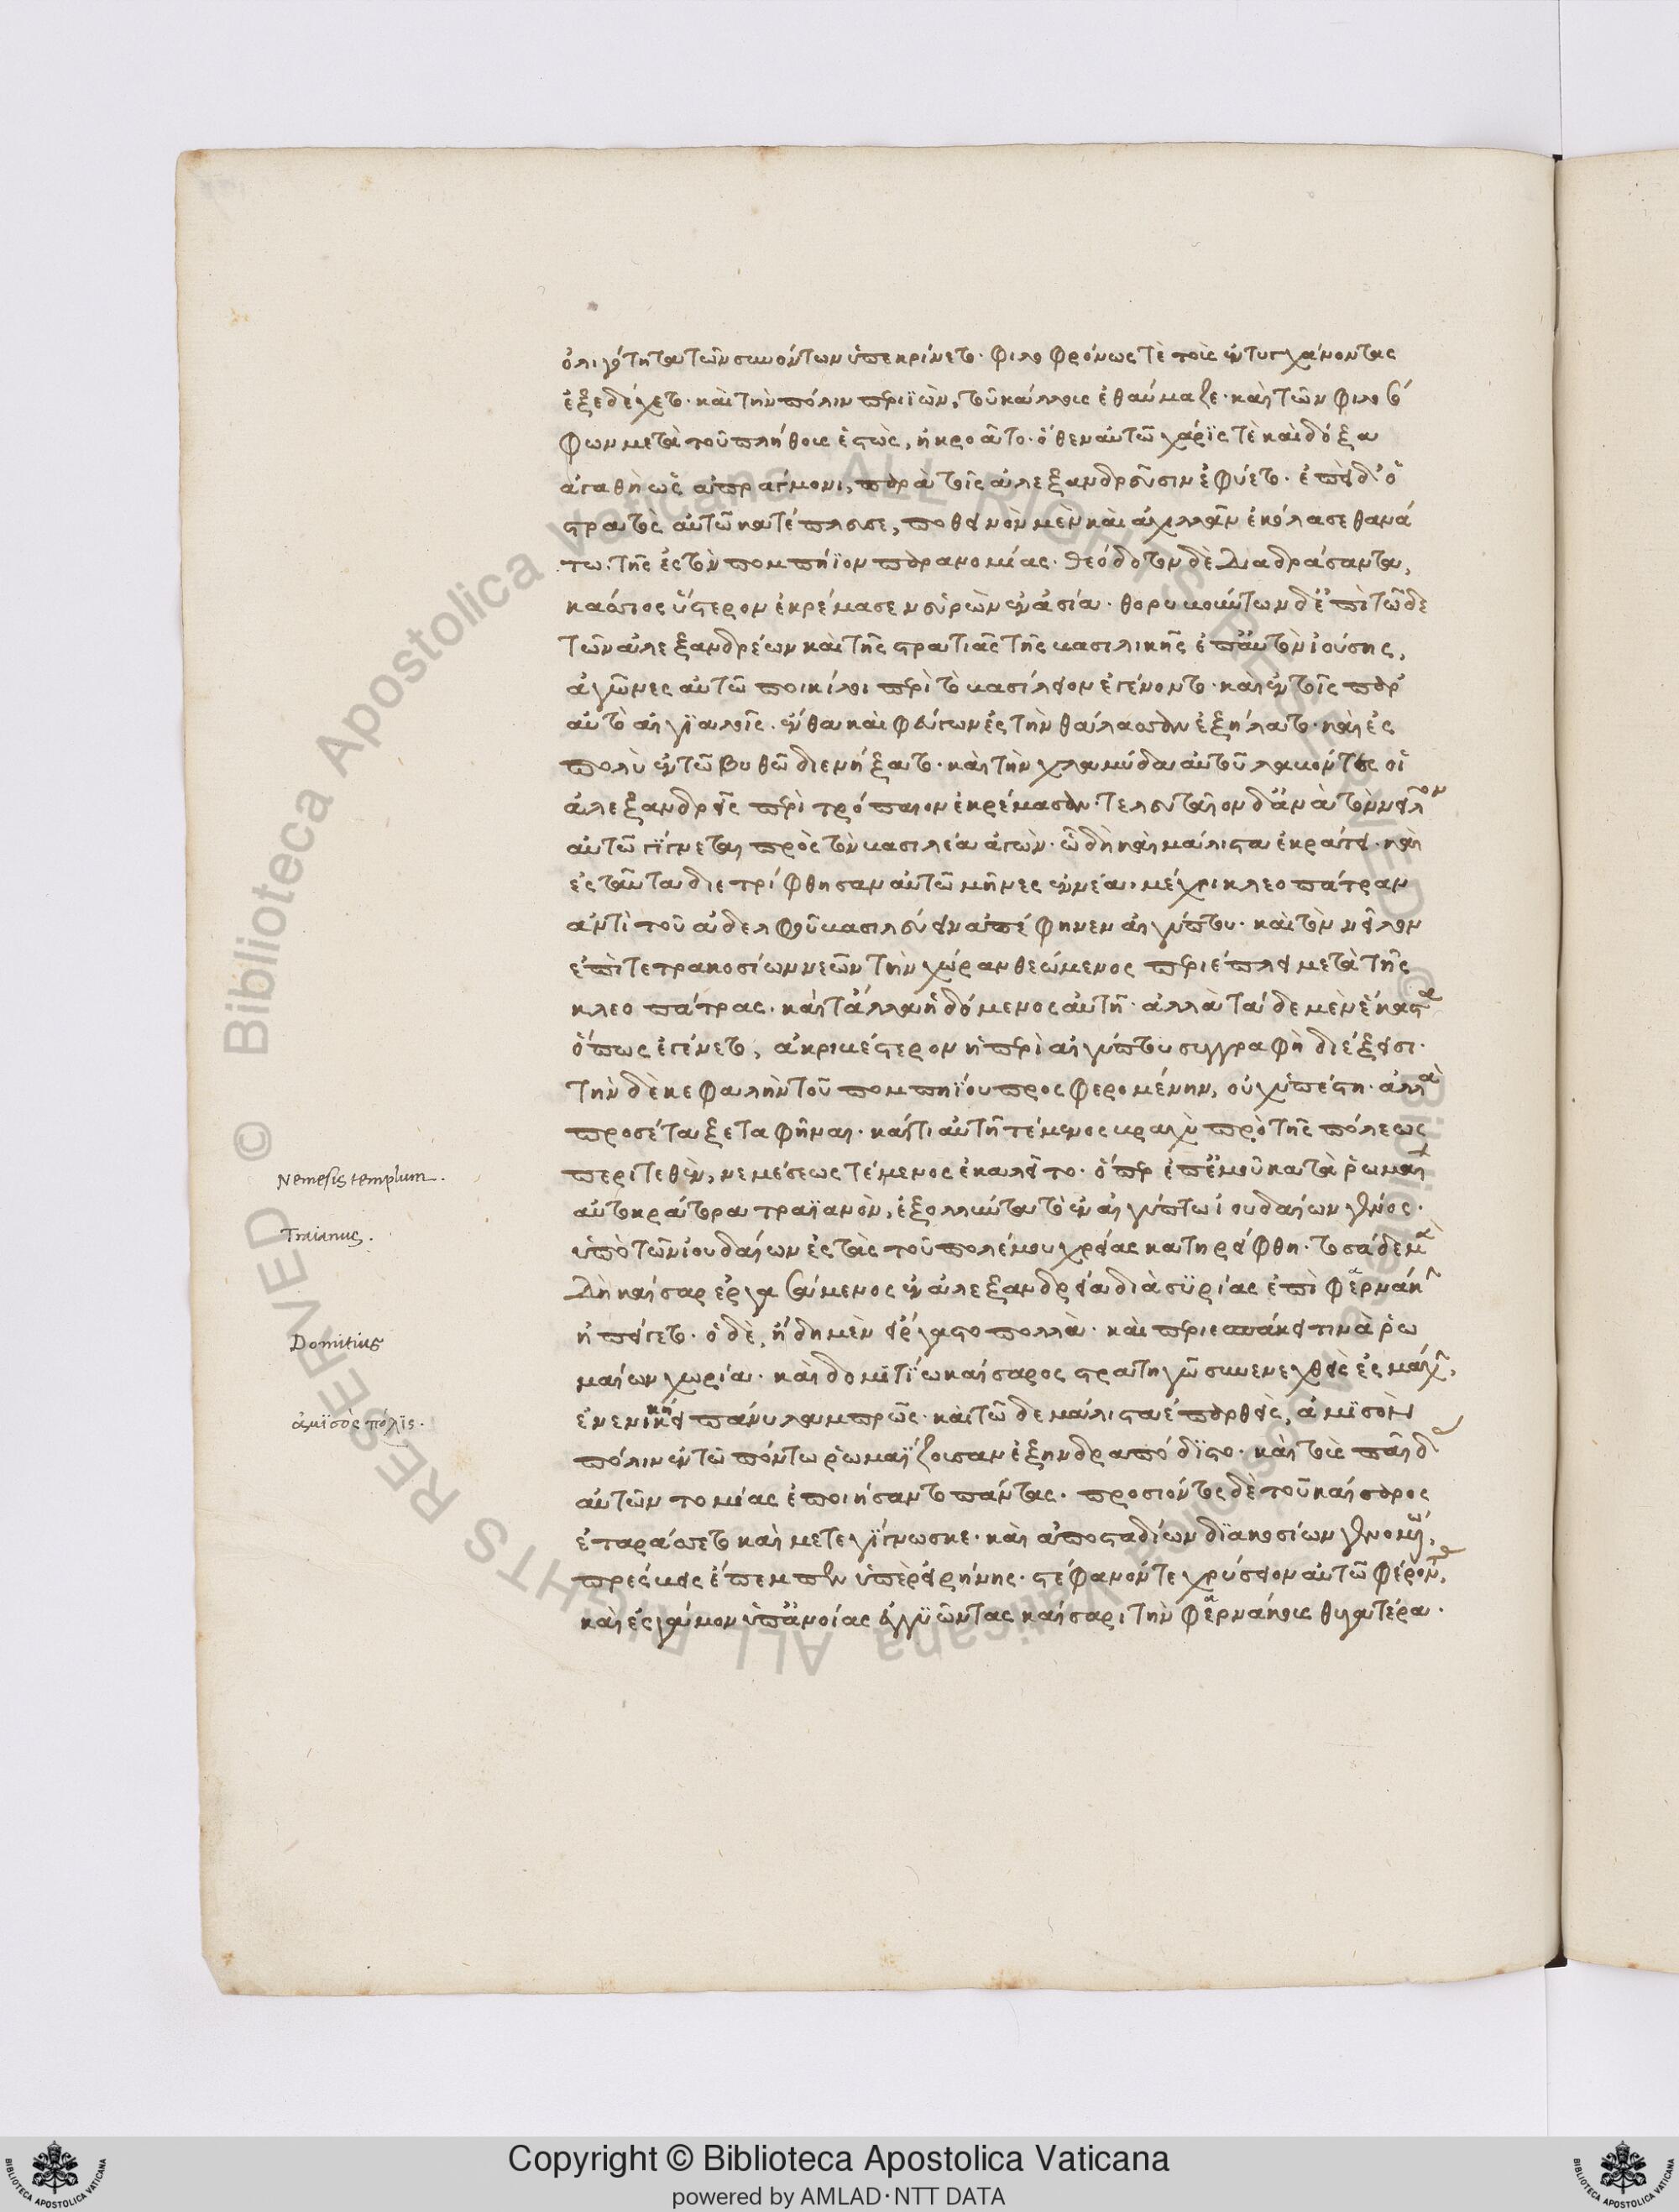 ὀλιγότητα τῶν συνόντων ὑπεκρίνετο· φιλοφρόνως τὲ τοὺς ἐντυγχάνοντας
ἐξεδέχετο· καὶ τὴν πόλιν περιϊὼν, τοῦ κάλλους ἐθαύμαζε· καὶ τῶν φιλοσό
φων μετὰ τοῦ πλήθους ἑστὼς, ἠκροᾶτο· ὅθεν αὐτῶ χάρϊς τὲ καὶ δόξα
ἀγαθὴ ὡς ἀπράγμονι, παρὰ τοῖς ἀλεξανδρεῦσιν ἐφύετο· ἐπεὶ δ' ὁ
στρατὸς αὐτῶ κατέπλευσε, ποθεινὸν μὲν καὶ ἀχιλλᾶν ἐκόλασε θανά
τω· τῆς ἐς τὸν πομπήϊον παρανομίας· θεόδοτον δὲ διαδράσαντα,
κάσσιος ὕστερον ἐκρέμασεν εὑρὼν ἐν ἀσία· θορυβούντων δ' ἐπὶ τῶδε
τῶν ἀλεξανδρέων καὶ τῆς στρατιᾶς τῆς βασιλικῆς ἐπ' αὐτὸν ἰούσης,
ἀγῶνες αὐτῶ ποικίλοι περὶ τὸ βασίλειον ἐγένοντο· καὶ ἐν τοῖς παρ'
αὐτὸ αἰγιαλοῖς· ἔνθα καὶ φεύγων ἐς τὴν θάλασσαν ἐξήλατο· καὶ ἐς
πολὺ ἐν τῶ βυθῶ διενήξατο· καὶ τὴν χλαμύδα αὐτοῦ λαβόντες οἱ
ἀλεξανδρεῖς περὶ τρόπαιον ἐκρέμασαν· τελευταῖον δ' ἀνὰ τὸν νεῖλον
αὐτῶ γίγνεται πρὸς τὸν βασιλέα ἀγών· ὧ δὴ καὶ μάλιστα ἐκράτει· καὶ
ἐς ταῦτα διετρίφθησαν αὐτῶ μῆνες ἐννέα· μέχρι κλεοπάτραν
ἀντὶ τοῦ ἀδελφοῦ βασιλεύειν ἀπέφηνεν αἰγύπτου· καὶ τὸν νεῖλον
ἐπὶ τετρακοσίων νεῶν τὴν χώραν θεώμενος περιέπλει μετὰ τῆς
κλεοπάτρας· καὶ τἆλλα ἡδόμενος αὐτῆ· ἀλλὰ τάδε μὲν ἕκαστα
ὅπως ἐγένετο, ἀκριβέστερον ἡ περὶ αἰγύπτου συγγραφὴ διέξεισι·
τὴν δὲ κεφαλὴν τοῦ πομπηΐου προσφερομένην, οὐχ ὑπέστη· ἀλλὰ
προσέταξε ταφῆναι· καί τι αὐτῆ τέμενος βραχὺ πρὸ τῆς πόλεως
περιτεθὲν, νεμέσεως τέμενος ἐκαλεῖτο· ὅπερ ἐπ' ἐμοῦ κατὰ ῥωμαί
αὐτοκράτορα τραϊανὸν, ἐξολλύντα τὸ ἐν αἰγύπτω ἰουδαίων γένος·
ὑπὸ τῶν ἰουδαίων ἐς τὰς τοῦ πολέμου χρείας κατηρείφθη· τοσάδε μὲν
δὴ καῖσαρ ἐργασάμενος ἐν ἀλεξανδρεία διὰ συρίας ἐπὶ φαρνάκην
ἠπείγετο· ὁ δὲ, ἤδη μὲν εἴργαστο πολλὰ· καὶ περιεσπάκει τινὰ ῥω
μαίων χωρία· καὶ δομιτίω καίσαρος στρατηγῶ συνενεχθεὶς ἐς μάχην,
ἐνενικήκει πάνυ λαμπρῶς· καὶ τῶδε μάλιστα ἐπαρθεὶς, ἀμϊσὸν
πόλιν ἐν τῶ πόντω ῥωμαΐζουσαν ἐξηνδραπόδϊστο· καὶ τοὺς παῖδας
αὐτῶν τομίας ἐποιήσαντο πάντας· προσιόντος δὲ τοῦ καίσαρος
ἐταράσσετο καὶ μετεγίγνωσκε· καὶ ἀπὸ σταδίων διακοσίων γενομένω,
πρέσβεις ἔπεμπεν ὑπὲρ εἰρήνης· στέφανόν τε χρύσειον αὐτῶ φέροντας,
καὶ ἐς γάμον ὑπ' ἀνοίας ἐγγυῶντας καίσαρι τὴν φαρνάκους θυγατέρα·
Nemesis templum.
Traianus.
Domitius
ἀμϊσὸς πόλϊς.
Copyright © Biblioteca Apostolica Vaticana
powered by AMLAD·NTT DATA